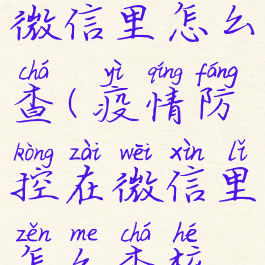 微信里怎么
chá yì qíng fáng
查(疫情防
kòng zài wēi xìn lǐ
控在微信里
zěn me chá hé
怎么查核